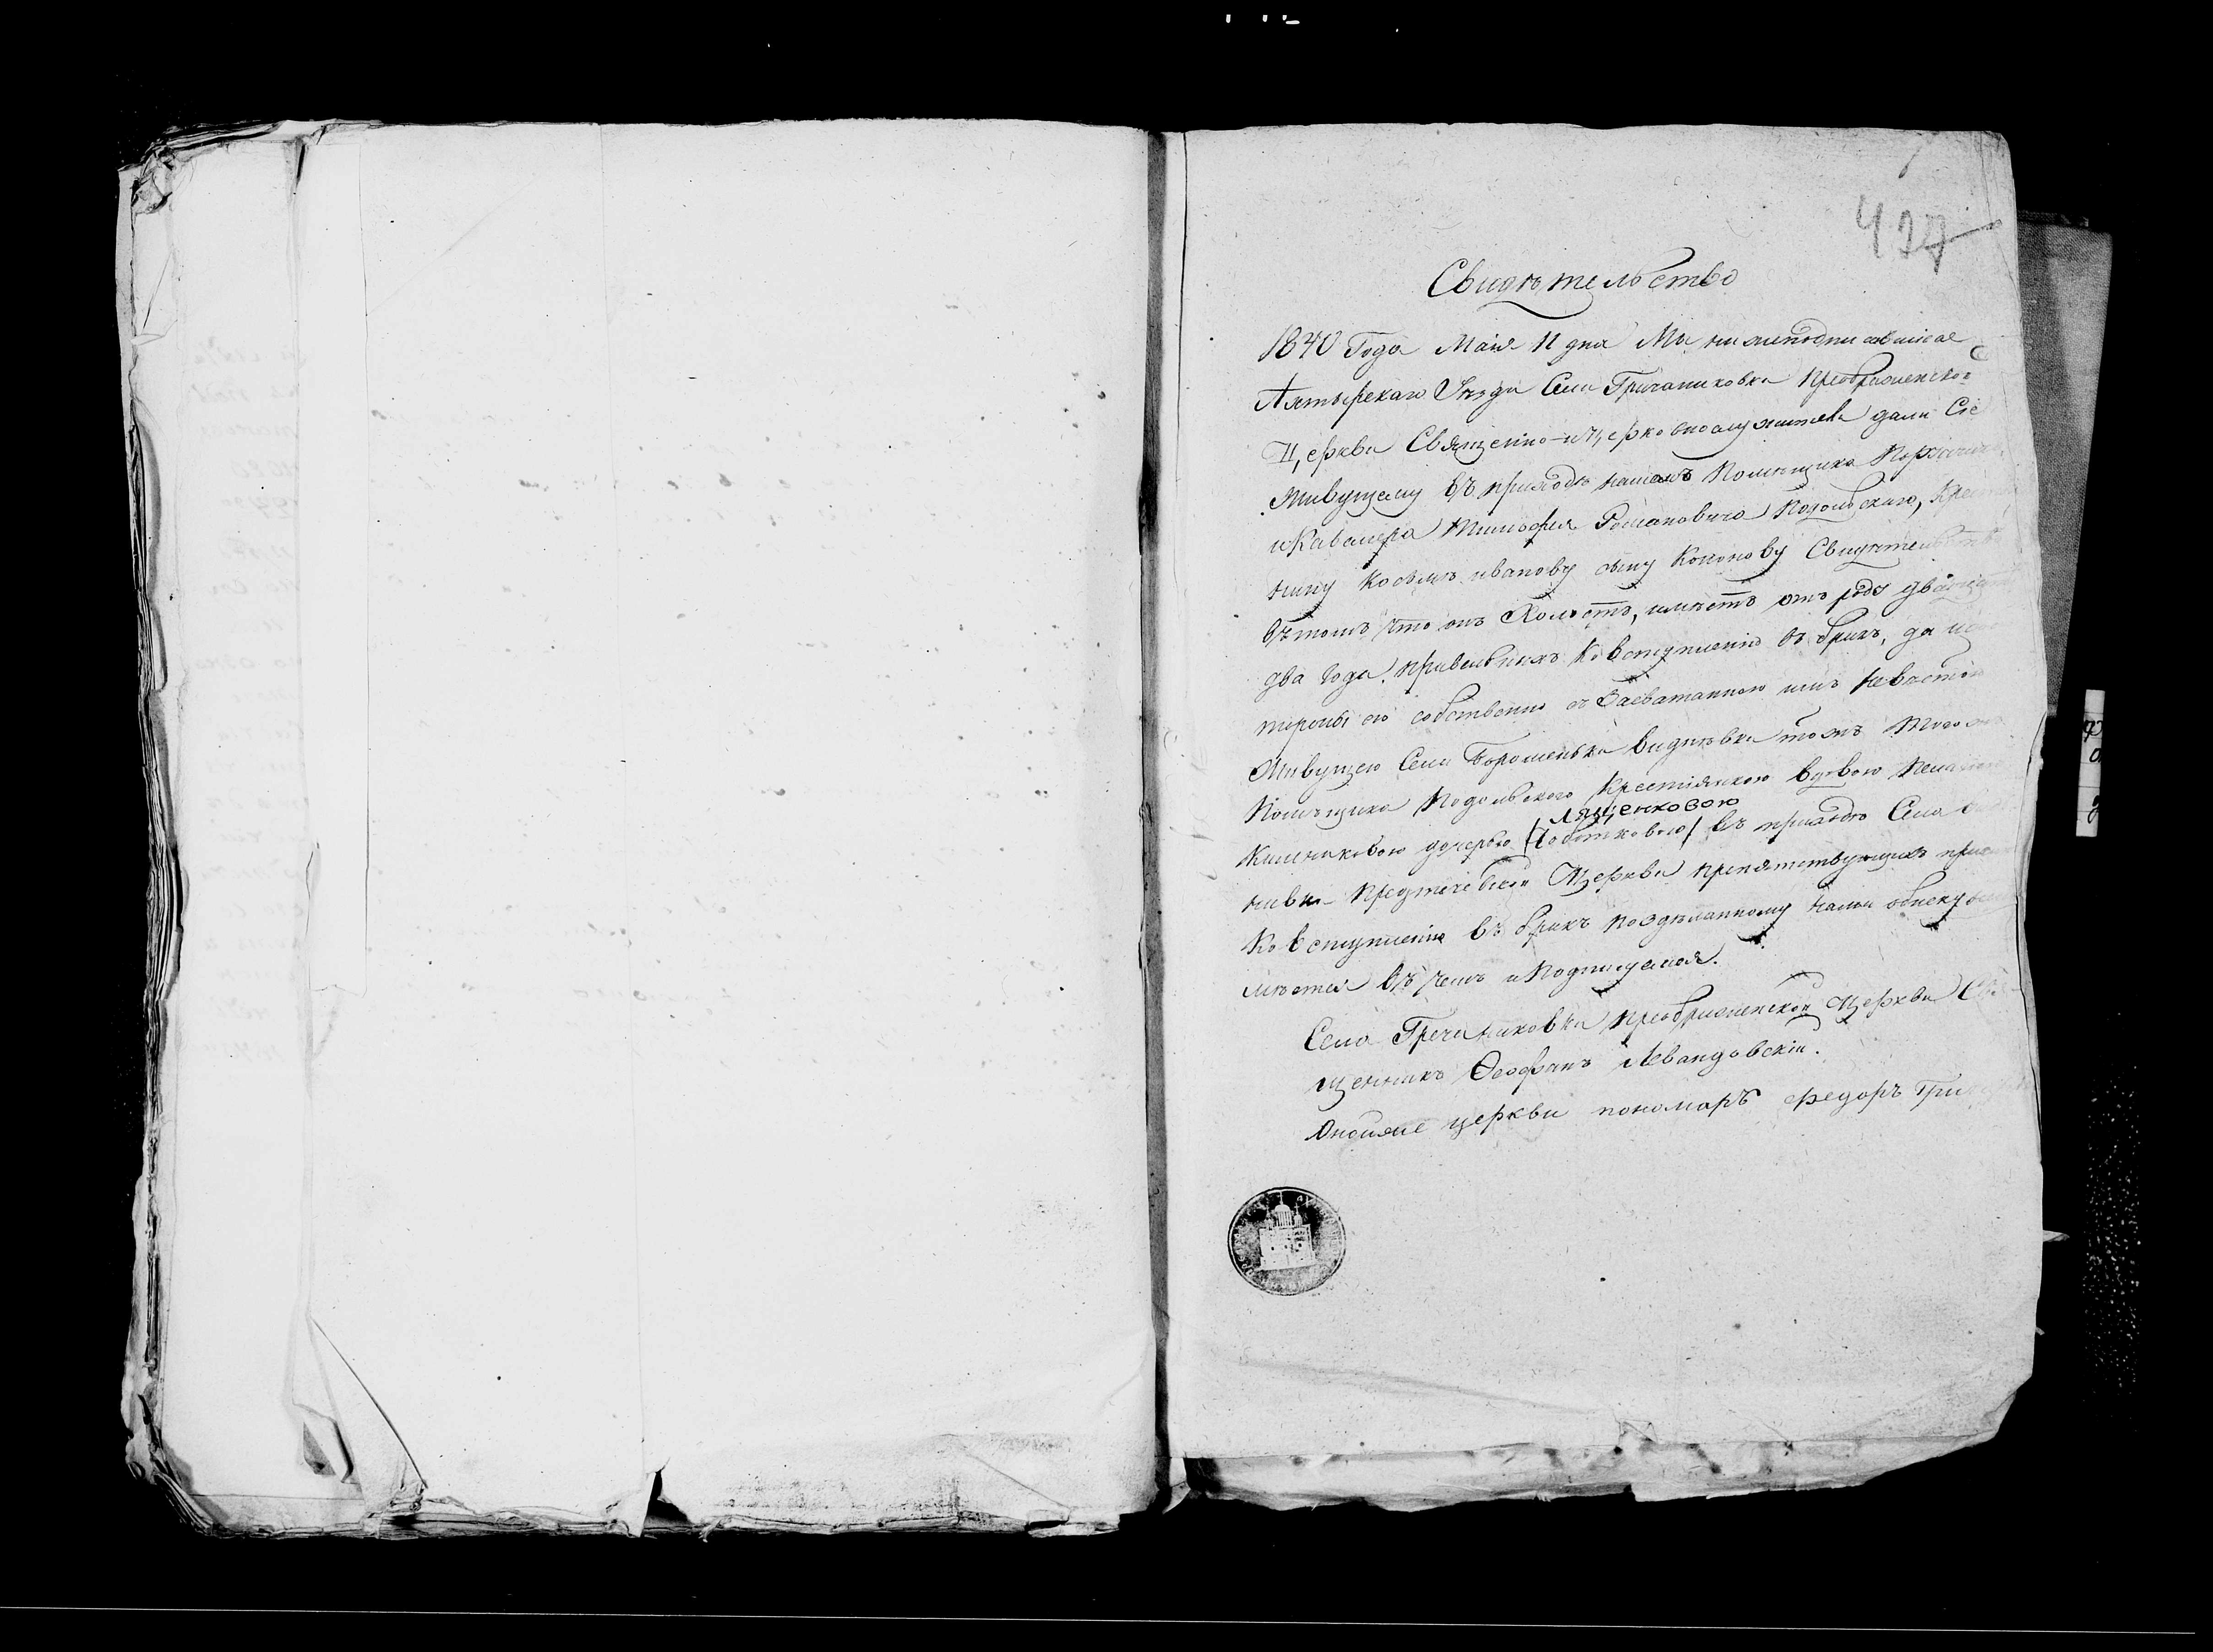 427
Свидѣтельство
1840 Года Маія 11 дня Мы нижеподписавшіеся
Ахтырскаго Уѣзда Села Гричаниковки Преображенской
Церкви Священно-и Церковнослужители дали Сіе
живущему въ приходѣ нашемъ Помѣщика
и Кавалера Тимофея Романовича Подольскаго,
нину Косьмѣ Иванову сыну Кононову Свидѣтельство
въ томъ что онъ Холостъ, имѣетъ отъ роду двадцать
два года. правильныхъ ко вступленію въ бракъ, да и
стороны его собственно съ Засватанною имъ Невѣстою
Живущею Села Боромельки Видновки тожъ того же
Помѣщика Подольского Крестіянкою вдовою
дочерью /Чоботковою/ въ приходѣ Села
Лященковою
Предтечевской Церкви препятствующихъ
Ко вступленію въ бракъ по здѣланному нами обыску
мѣется въ чемъ и Подписуемся.
Села Гречаниковки Преображенской Церкви Свя-
щенникъ Ѳеофанъ Левандовскій.
Оной же церкви пономаръ Федоръ